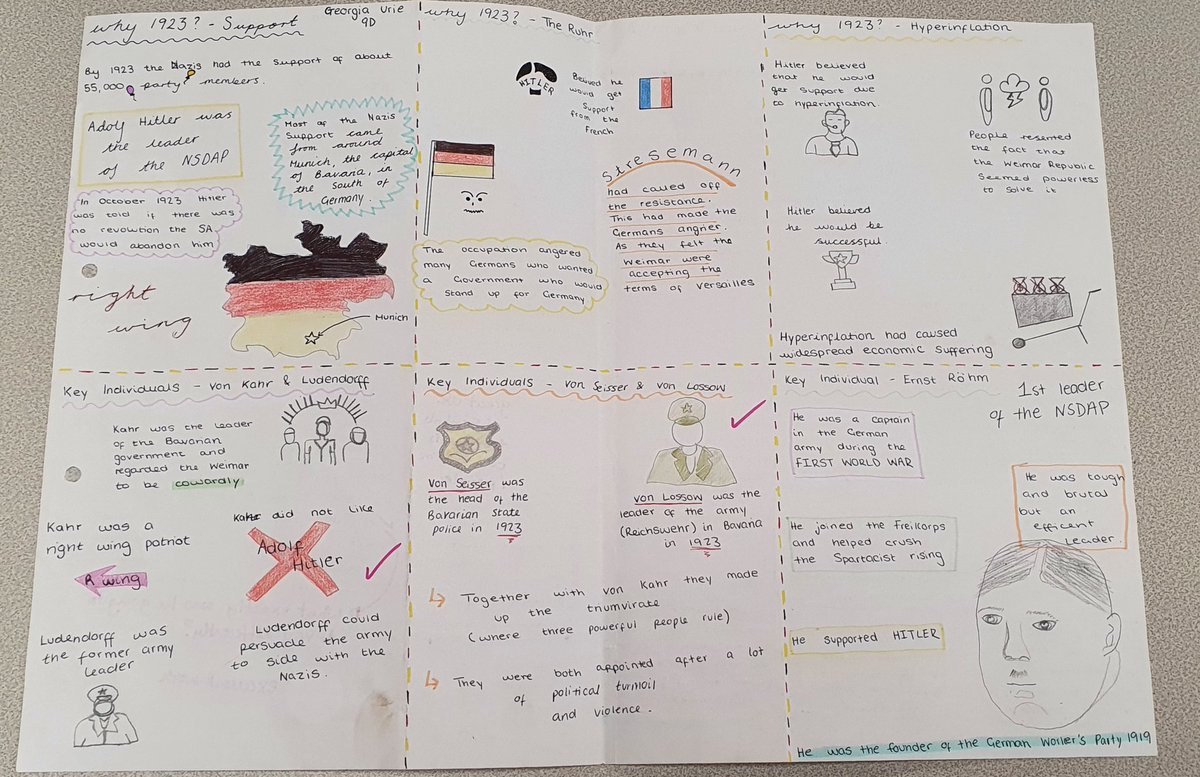 why 1923? - Support
Georgia Urie
9D
By 1923 the Nazis had the support of about
55,000 party members.
Adolf Hitler was
the leader
of the NSDAP
Most of the Nazis
Support came
from around
Munich, the capital
of Bavaria, in
the south of
Germany.
In October 1923 Hitler
was told if there was
no revolution the SA
would abandon him
right
wing
Munich
why 1923? - The Ruhr
HITLER
Believed he
would get
Support
from the
French
Stresemann
had called off
the resistance.
This had made the
Germans angrier.
As they felt the
Weimar were
accepting the
terms of versailles
The occupation angered
many Germans who wanted
a Government who would
Stand up for Germany
why 1923? - Hyperinflation
Hitler believed
that he would
get support due
to hyperinflation.
People resented
the fact that
the Weimar Republic
Seemed powerless
to solve it
Hitler believed
he would be
successful.
Hyperinflation had caused
widespread economic suffering
Key Individuals - von Kahr & Ludendorff
Kahr was the leader
of the Bavarian
government and
regarded the Weimar
to be cowardly
Kahr was a
right wing patriot
R wing
Kahr did not like
Adolf
Hitler
Ludendorff was
the former army
leader
Ludendorff could
persuade the army
to side with the
Nazis.
Key Individuals - von Seisser & von Lossow
Von Seisser was
the head of the
Bavarian State
police in 1923
von Lossow was the
leader of the army
(Reichswehr) in Bavaria
in 1923
Together with von Kahr they made
up the triumvirate
(where three powerful people rule)
They were both appointed after a lot
of political turmoil
and violence.
Key Individual - Ernst Röhm
1st leader
of the NSDAP
He was a captain
in the German
army during the
FIRST WORLD WAR
He was tough
and brutal
but an
efficent
Leader.
He joined the Freikorps
and helped crush
the Spartacist rising
He supported HITLER
He was the founder of the German Worler's Party 1919